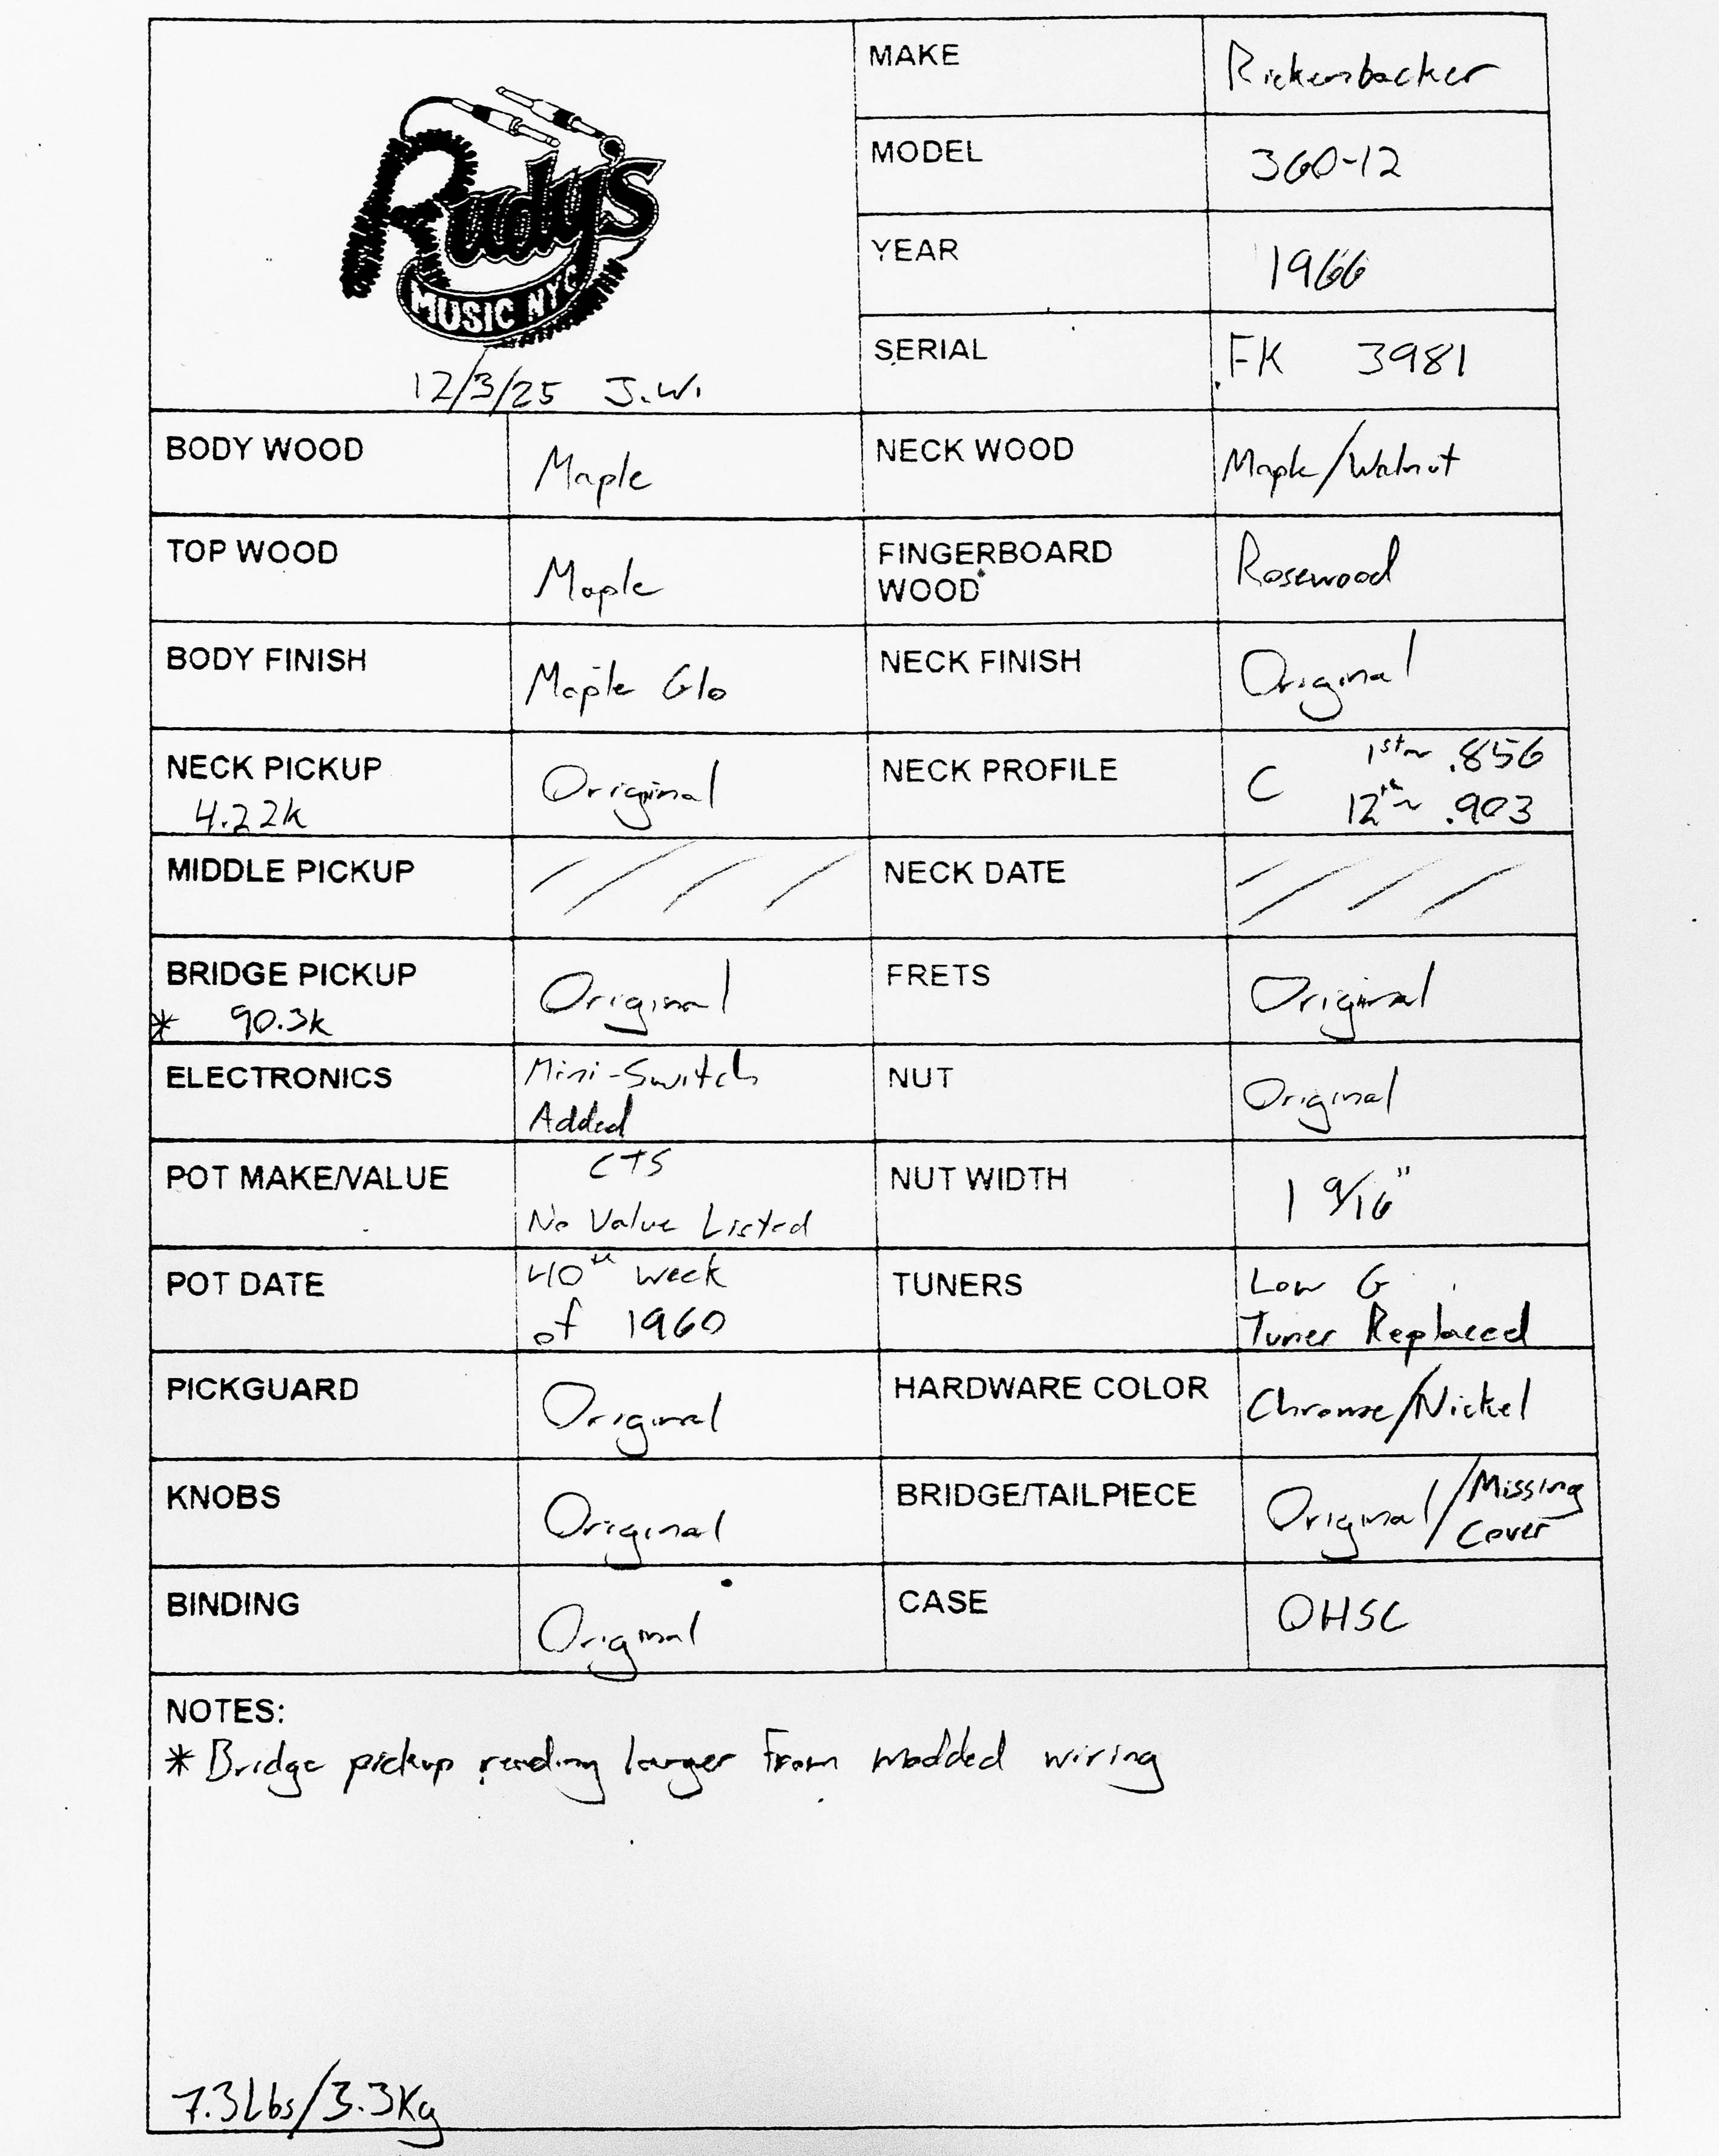 Rudy's
MUSIC NYC
12/3/25 J.W.
MAKE Rickenbacker
MODEL 360-12
YEAR 1966
SERIAL FK 3981
BODY WOOD Maple NECK WOOD Maple/Walnut
TOP WOOD Maple FINGERBOARD
WOOD Rosewood
BODY FINISH Maple Glo NECK FINISH Original
NECK PICKUP
4.22k Original NECK PROFILE C 1st~ .856
12th~ .903
MIDDLE PICKUP //// NECK DATE ////
BRIDGE PICKUP
* 90.3k Original FRETS Original
ELECTRONICS Mini-Switch
Added NUT Original
POT MAKE/VALUE CTS
No Value Listed NUT WIDTH 1 9/16"
POT DATE 40th week
of 1960 TUNERS Low G
Tuner Replaced
PICKGUARD Original HARDWARE COLOR Chrome/Nickel
KNOBS Original BRIDGE/TAILPIECE Original/Missing
Cover
BINDING Original CASE OHSC
NOTES:
* Bridge pickup reading larger from modded wiring
7.3Lbs/3.3Kg